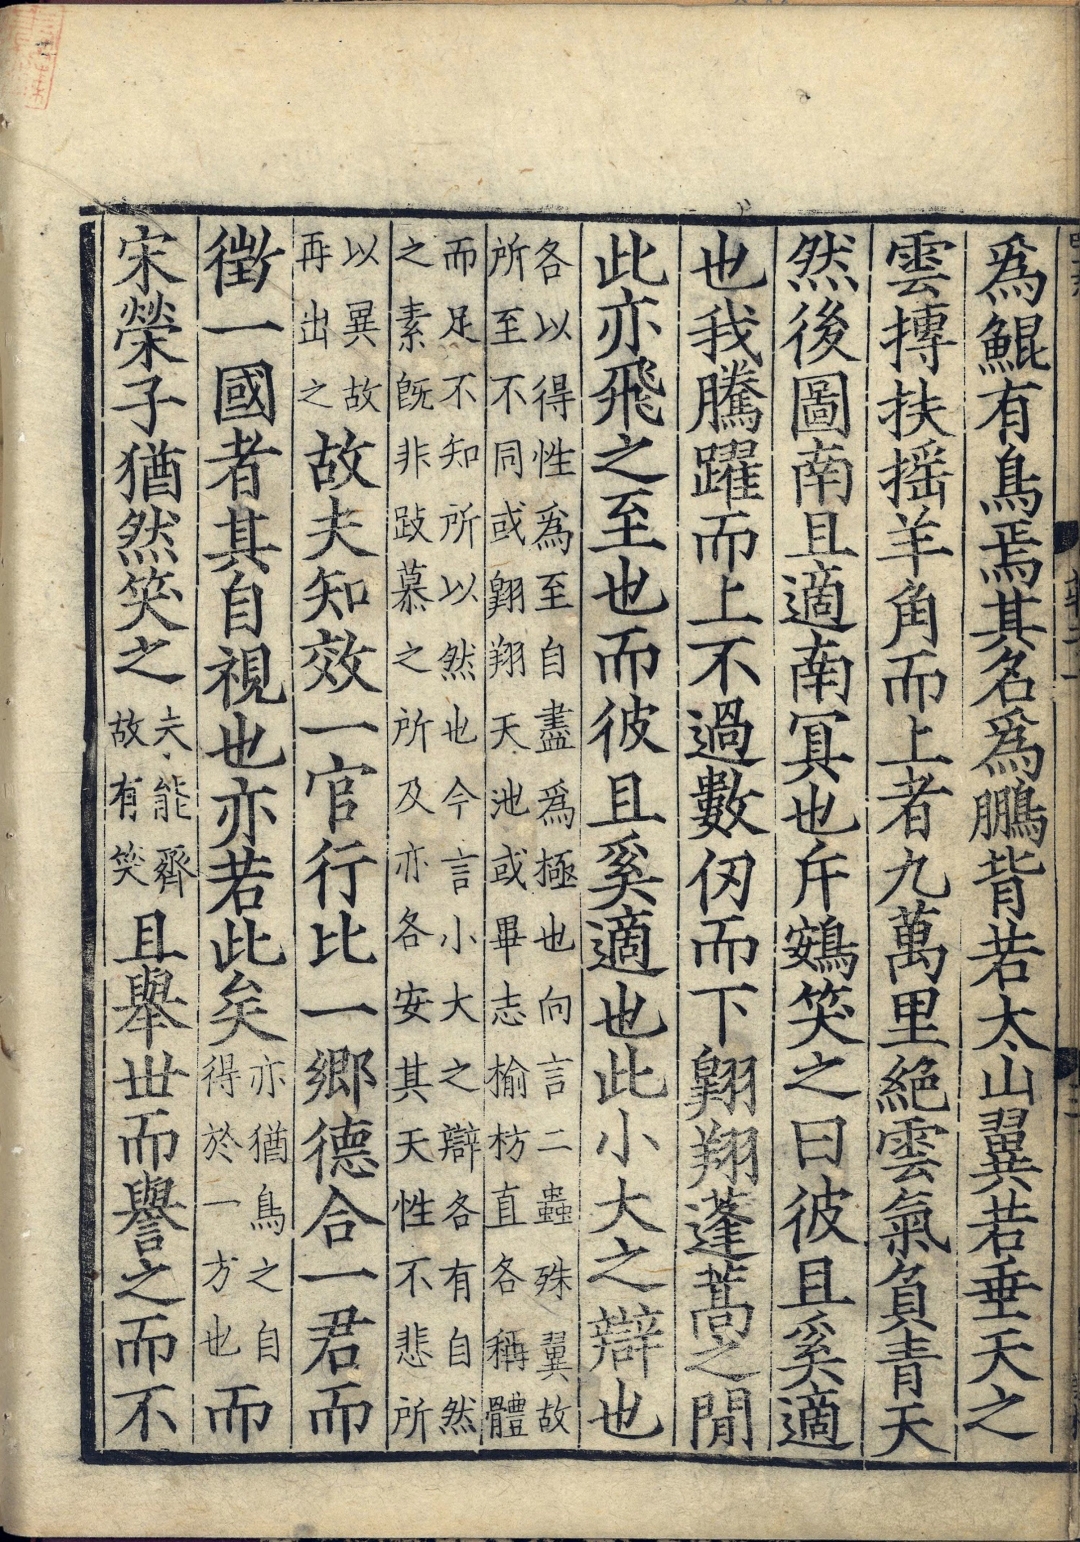 爲鯤有鳥焉其名爲鵬背若太山翼若垂天之
雲搏扶揺羊角而上者九萬里絶雲氣負青天
然後圖南且適南冥也斥鴳笑之曰彼且奚適
也我騰躍而上不過數仞而下翱翔蓬蒿之閒
此亦飛之至也而彼且奚適也此小大之辯也
各以得性爲至自盡爲極也向言二蟲殊翼故
所至不同或翱翔天池或畢志榆枋直各稱體
而足不知所以然也今言小大之辯各有自然
之素既非跂慕之所及亦各安其天性不悲所
以異故
再出之
故夫知效一官行比一鄉德合一君而
徵一國者其自視也亦若此矣
亦猶鳥之自
得於一方也
而
宋榮子猶然笑之
夫能齊
故有笑
且舉世而譽之而不